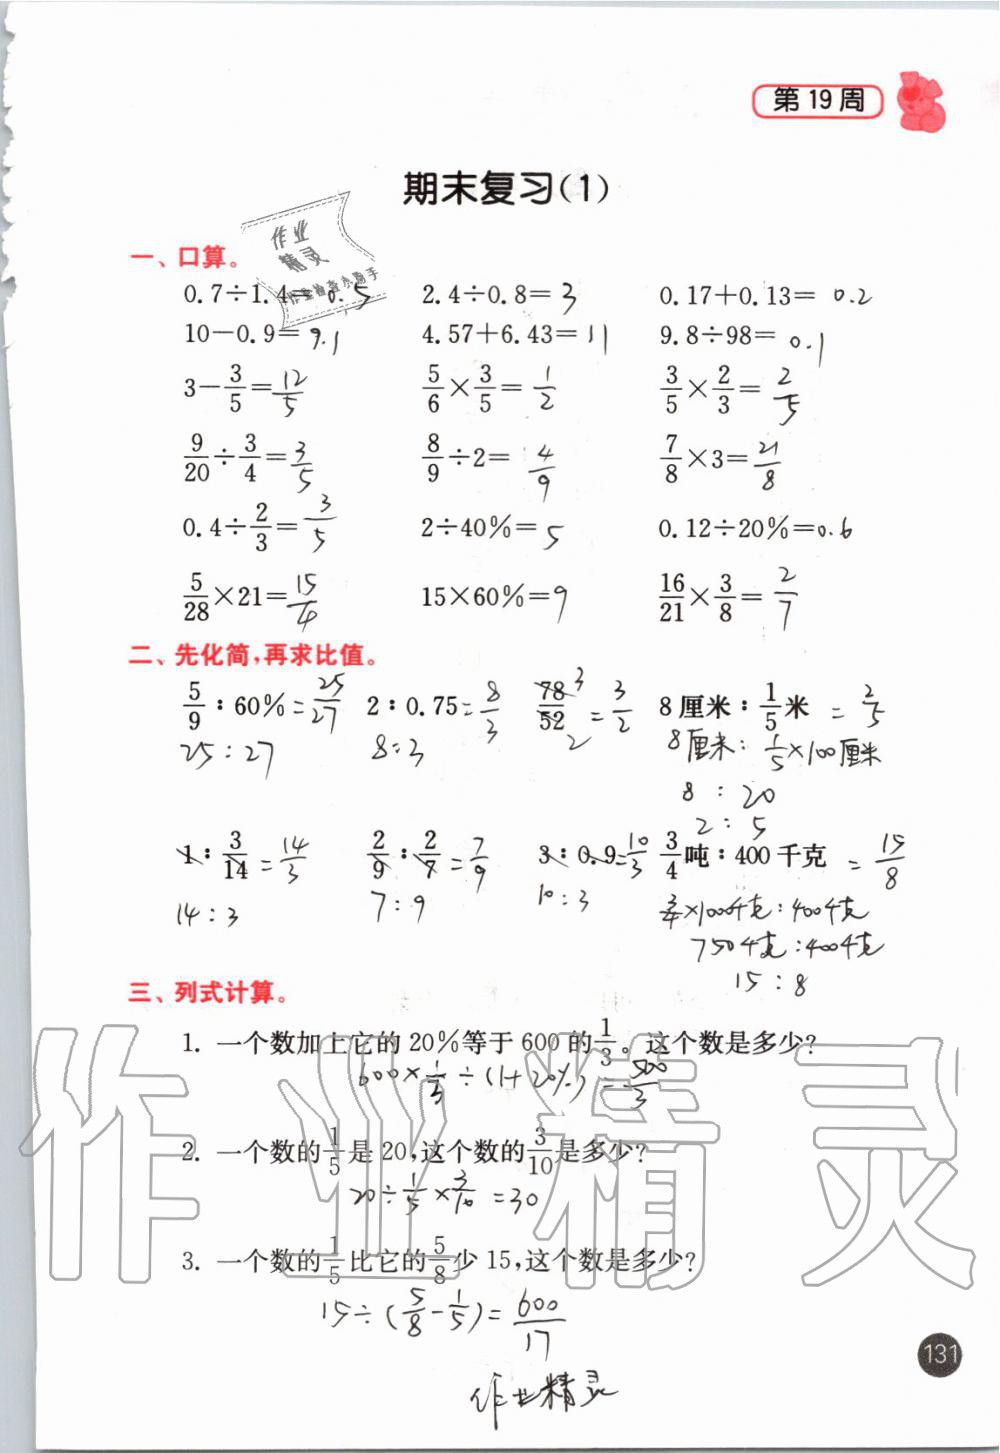 第19周
期末复习(1)
作业
精灵
作业检查小助手
一、口算。
0.7÷1.4=0.5 2.4÷0.8=3 0.17+0.13=0.2
10-0.9=9.1 4.57+6.43=11 9.8÷98=0.1
3-3/5=12/5 5/6×3/5=1/2 3/5×2/3=2/5
9/20÷3/4=3/5 8/9÷2=4/9 7/8×3=21/8
0.4÷2/3=3/5 2÷40%=5 0.12÷20%=0.6
5/28×21=15/4 15×60%=9 16/21×3/8=2/7
二、先化简,再求比值。
5/9:60%=25/27 2:0.75=8/3 78/52=3/2 8厘米:1/5米=2/5
25:27 8:3 3 2 8厘米:1/5×100厘米
8:20
2:5
1:3/14=14/3 2/9:2/7=7/9 3:0.9=10/3 3/4吨:400千克=15/8
14:3 7:9 10:3 3/4×1000千克:400千克
750千克:400千克
15:8
三、列式计算。
1. 一个数加上它的20%等于600的1/3。这个数是多少?
600×1/3÷(1+20%)=500/3
2. 一个数的1/5是20,这个数的3/10是多少?
20÷1/5×3/10=30
3. 一个数的1/5比它的5/8少15,这个数是多少?
15÷(5/8-1/5)=600/17
作业精灵
131
作业精灵